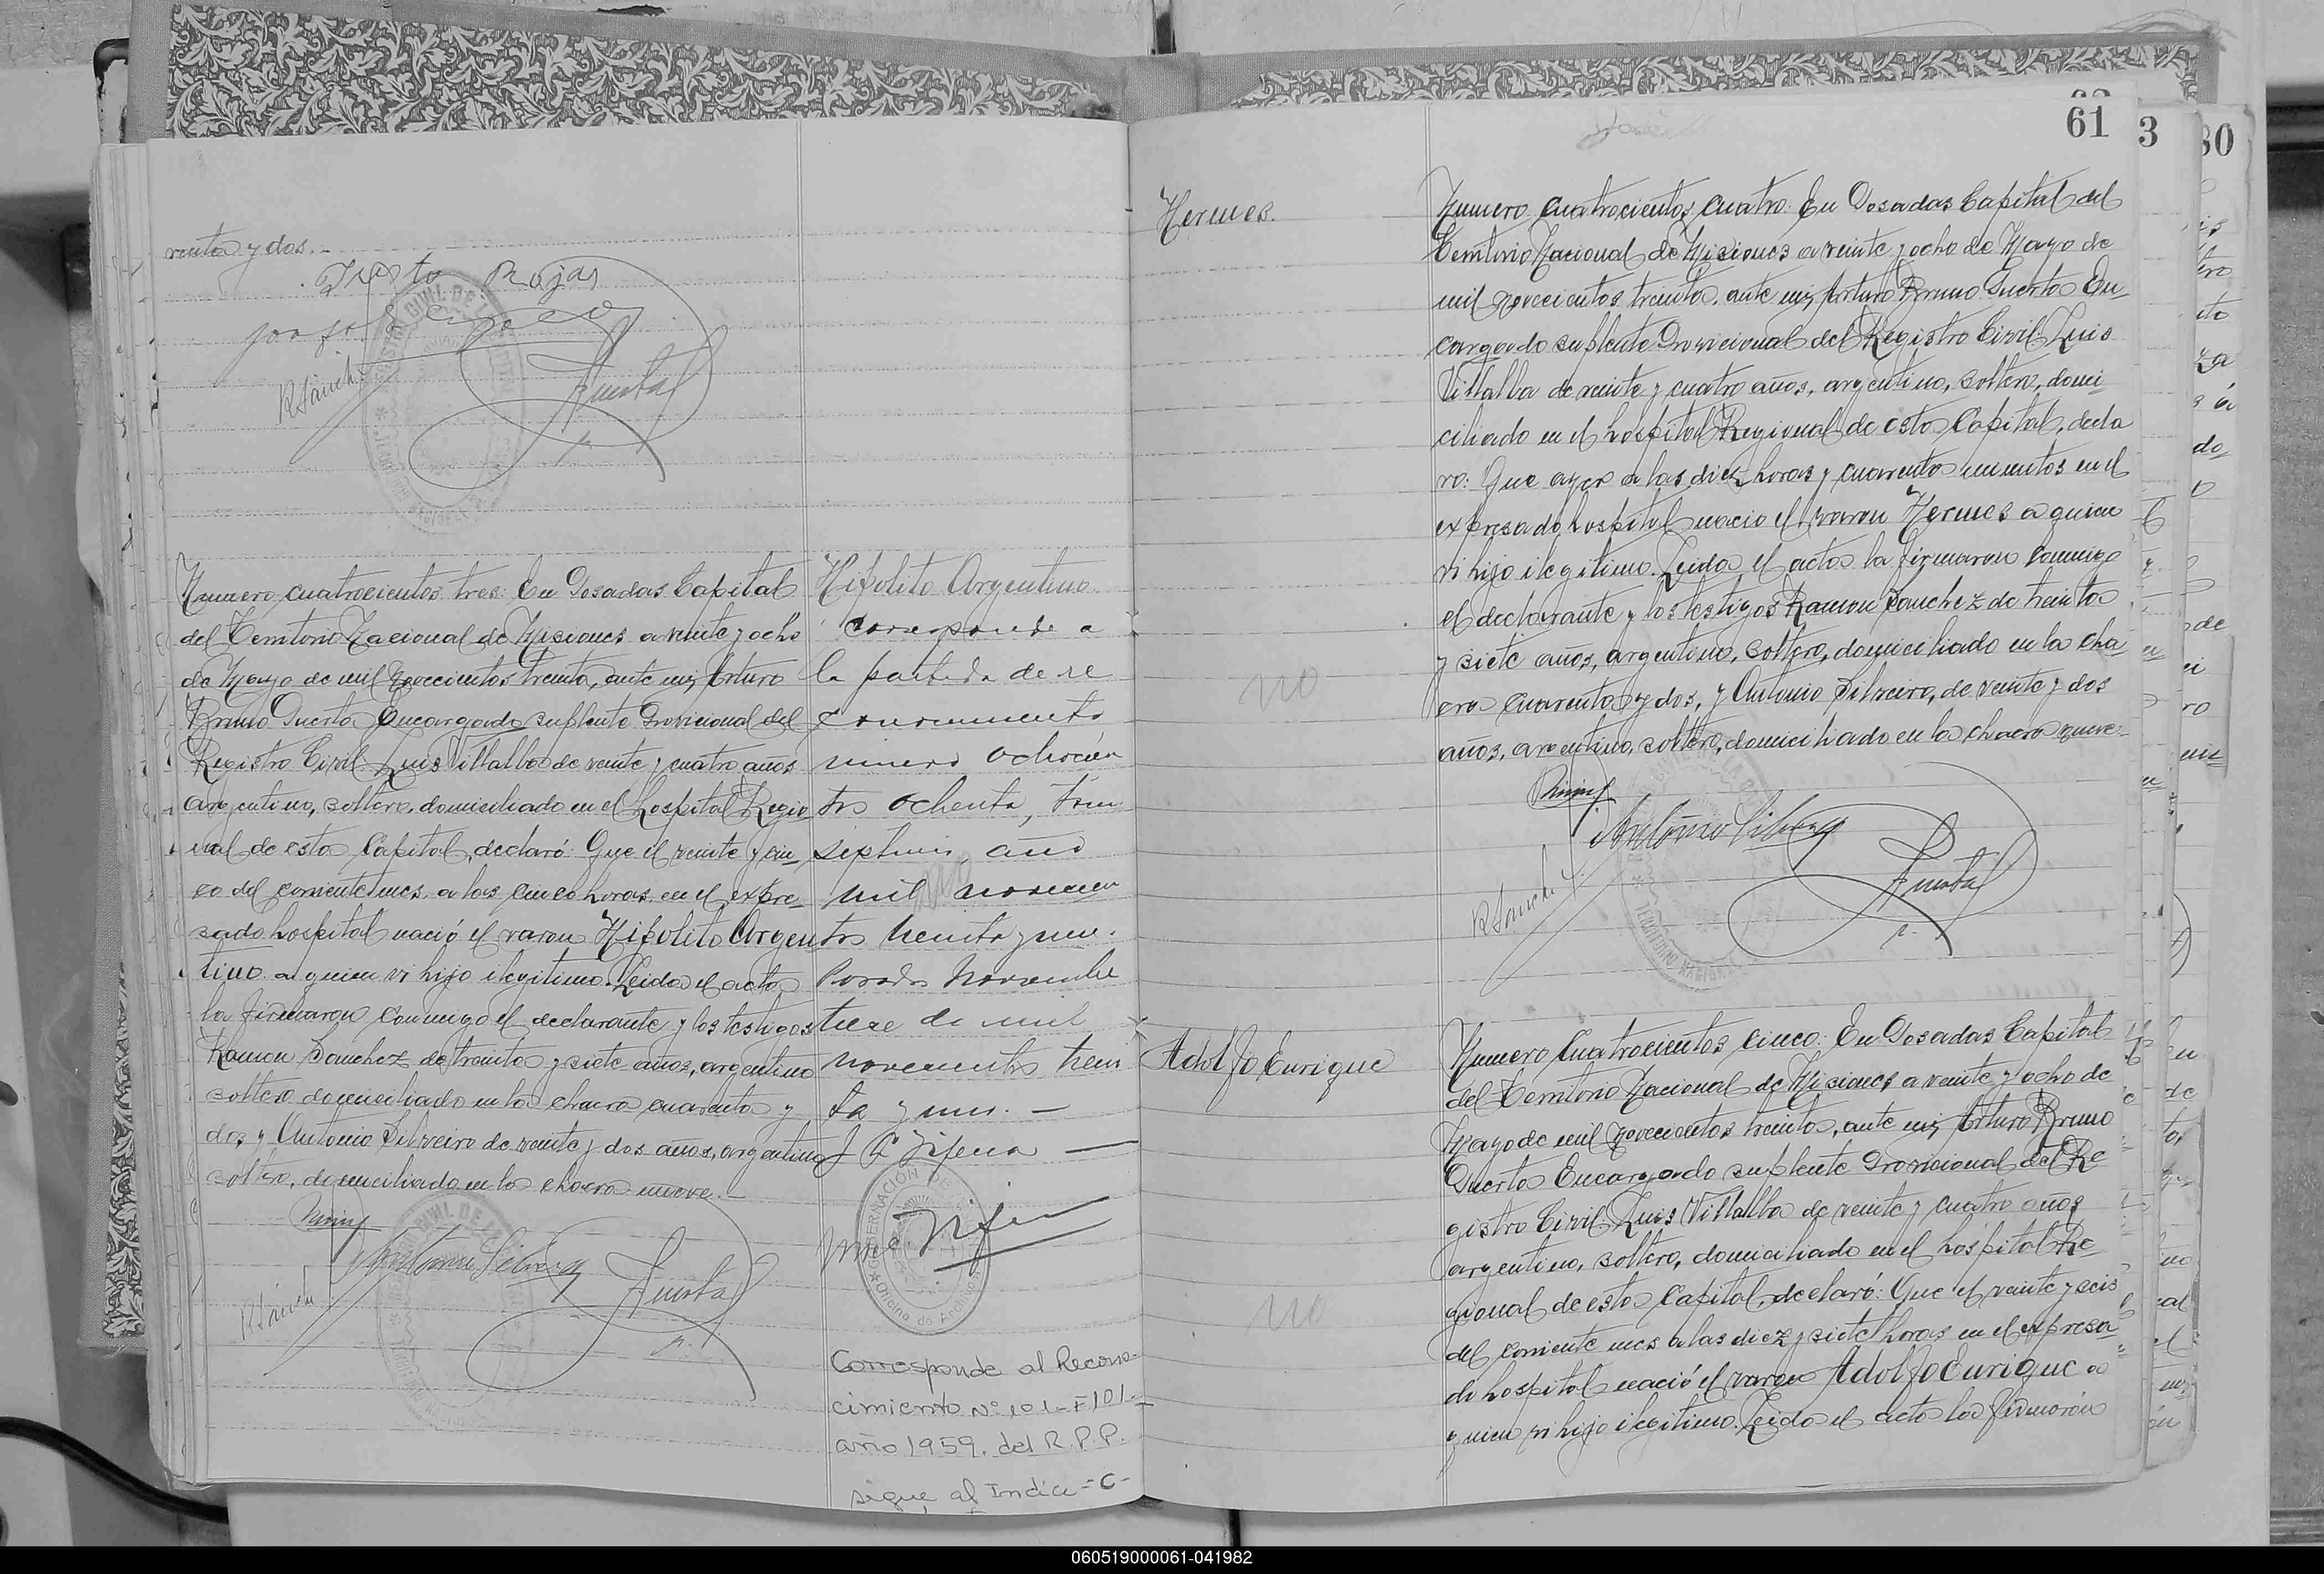 venta y dos.-
Justo Rojas
R Sánchez
Puerta
Numero cuatrocientos tres: En Posadas Capital
del Territorio Nacional de Misiones a veinte y ocho
de Mayo de mil novecientos treinta, ante mi, Arturo
Bruno Puerta Encargado suplente Provicional del
Registro Civil: Luis Villalba de veinte y cuatro años
argentino, soltero, domiciliado en el hospital Regio
nal de esta Capital, declaró: Que el veinte y cin_
co del corriente mes a las cinco horas en el expre_
sado hospital nació el varon Hipolito Argen
tino a quien vi hijo ilegitimo. Leida el acta
la firmaron conmigo el declarante y los testigos
Ramon Sanchez de treinta y siete años, argentino
soltero domiciliado en la chacra cuarenta y
dos y Antonio Silveiro de veinte y dos años, argentino
soltero, domiciliado en la chacra nueve.-
Antonio Silveira
R Sánchez
Puerta
Hipolito Argentino
Corresponde a
la partida de re
conocimiento
número ochocien
tos ochenta, tomo
septimo, año
mil novecien
tos treinta y uno.
Posadas Noviembre
trece de mil
novecientos trein
ta y uno. —
GOBERNACIÓN DE
Oficina de Archivo
Corresponde al Recono-
cimiento Nº 101-F 101-
año 1959. del R.P.P.
sigue al Indice =C-
61
3
80
Hermes.
Numero cuatrocientos cuatro: En Posadas Capital del
Territorio Nacional de Misiones a veinte y ocho de Mayo de
mil novecientos treinta, ante mi, Arturo Bruno Puerta En_
cargado suplente Provicional del Registro Civil: Luis
Villalba de veinte y cuatro años, argentino, soltero, domi_
ciliado en el hospital Regional de esta Capital, decla
ro: Que ayer a las diez horas y cuarenta minutos en el
expresado hospital nacio el varon Hermes a quien
vi hijo ilegitimo. Leida el acta la firmaron conmigo
el declarante y los testigos Ramon Sanchez de treinta
y siete años, argentino, soltero, domiciliado en la cha_
cra cuarenta y dos, y Antonio Silveiro, de veinte y dos
años, argentino, soltero, domiciliado en la chacra nueve.-
no
Antonio Silveira
R Sanchez
Puerta
Adolfo Enrique
Numero Cuatrocientos cinco: En Posadas Capital
del Territorio Nacional de Misiones a veinte y ocho de
Mayo de mil novecientos treinta, ante mi, Arturo Bruno
Puerta Encargado suplente Provicional del Re
gistro Civil: Luis Villalba de veinte y cuatro años
argentino, soltero, domiciliado en el hospital Re_
gional de esta Capital, declaró: Que el veinte y seis
del corriente mes a las diez y siete horas en el expresa_
do hospital nació el varon Adolfo Enrique a
quien vi hijo ilegitimo. Leida el acta la firmarón
no
060519000061-041982